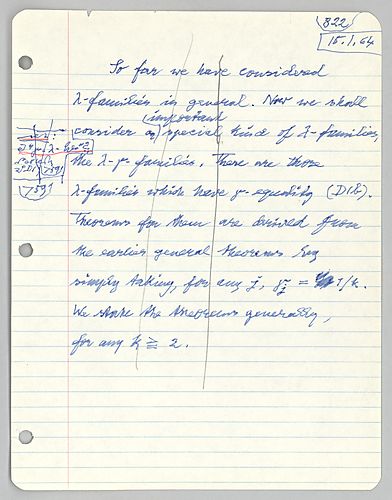 822
15.1.64
So far we have considered
λ-families in general. Now we shall
important
consider a special kind of λ-families,
the λ-γ-families. These are those
λ-families which have γ-equality (D18).
Theorems for them are derived from
the earlier general theorems by
simply taking, for any j, γj = 1/k.
We state the theorems generally,
for any k ≧ 2.
7591